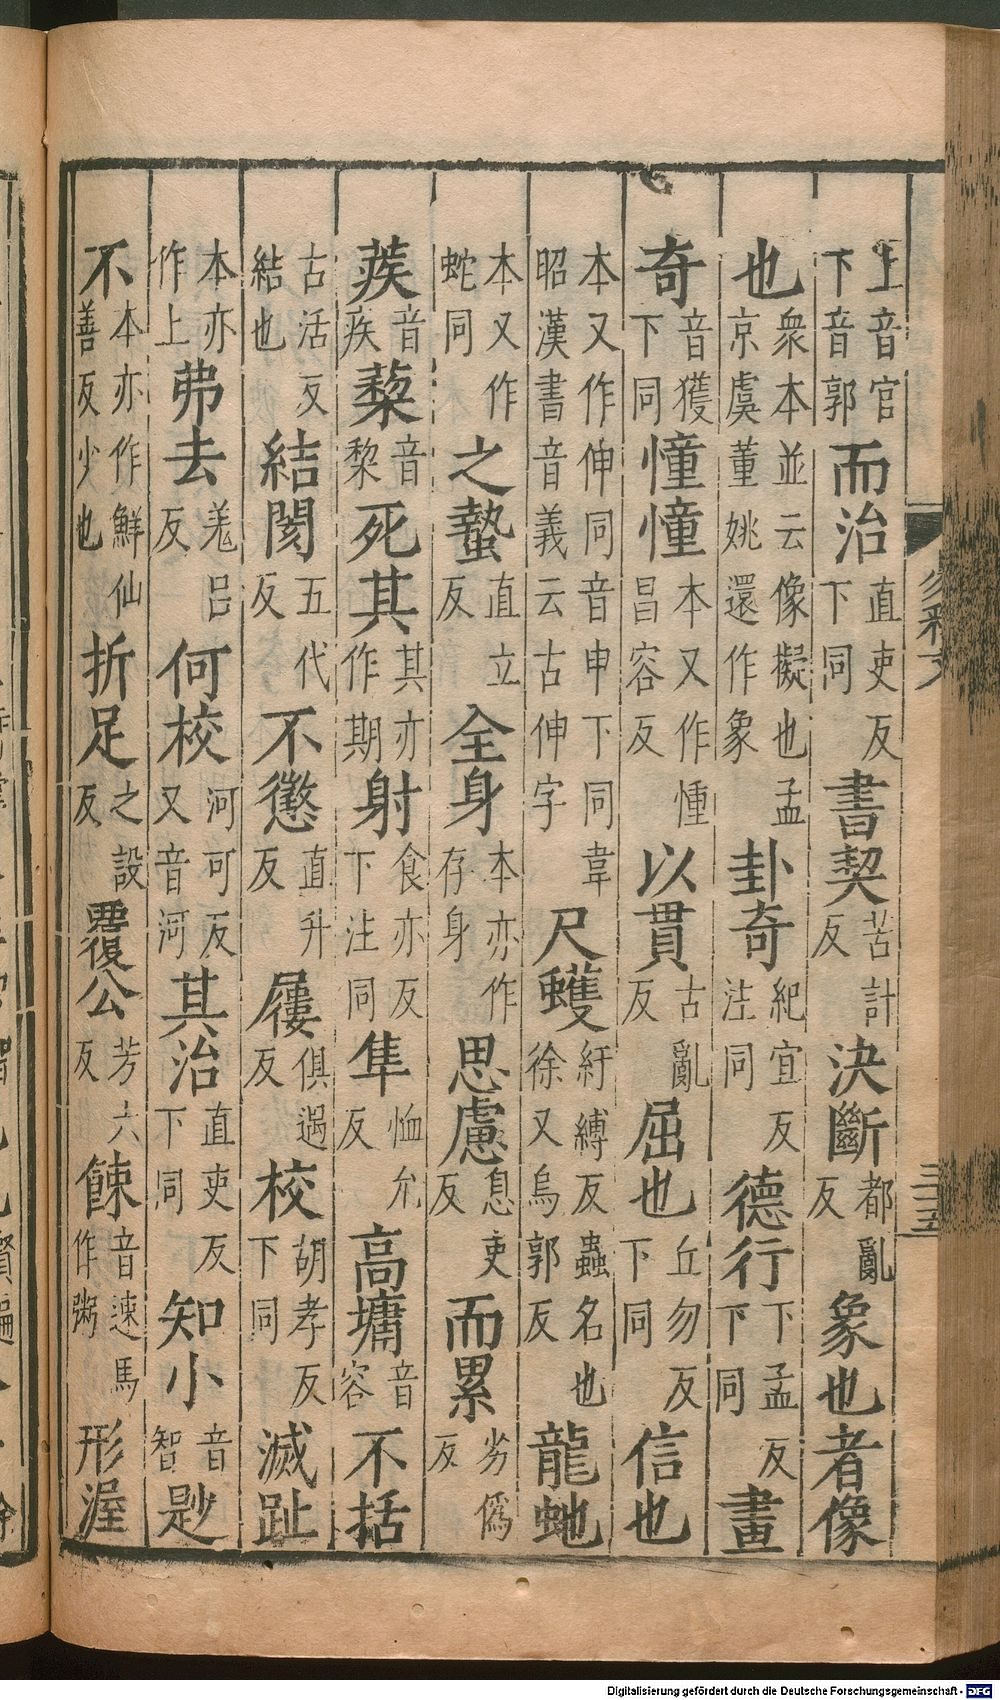 上音官下音郭而治直吏反下同書契苦計反決斷都亂反象也者像
也衆本並云像擬也孟京虞董姚還作象卦奇紀宜反注同德行下孟反下同畫
奇音獲下同憧憧本又作㥖昌容反以貫古亂反屈也丘勿反下同信也
本又作伸同音申下同韋昭漢書音義云古伸字尺蠖紆縛反蟲名也徐又烏郭反龍虵
本又作蛇同之蟄直立反全身本亦作存身思慮息吏反而累劣僞反
蒺音疾蔾音黎死其其亦作期射食亦反下注同隼恤允反高墉音容不括
古活反結也結閡五代反不懲直升反屨俱遇反校胡孝反下同滅趾
本亦作上弗去羌呂反何校河可反又音河其治直吏反下同知小音智尟
不本亦作鮮仙善反少也折足之設反覆公芳六反餗音速馬作粥形渥
易釋文
三十五
Digitalisierung gefördert durch die Deutsche Forschungsgemeinschaft - DFG